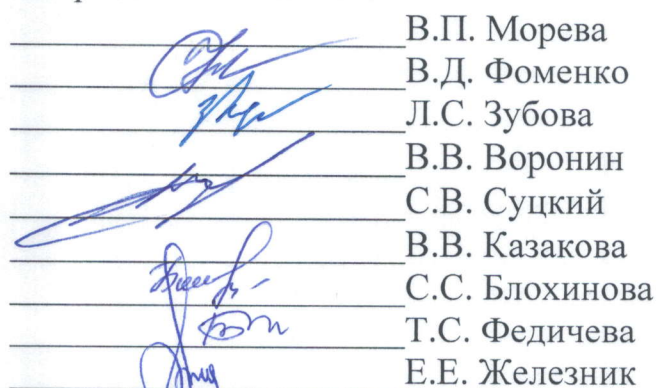 В.П. Морева
В.Д. Фоменко
Л.С. Зубова
В.В. Воронин
С.В. Суцкий
В.В. Казакова
С.С. Блохинова
Т.С. Федичева
Е.Е. Железник